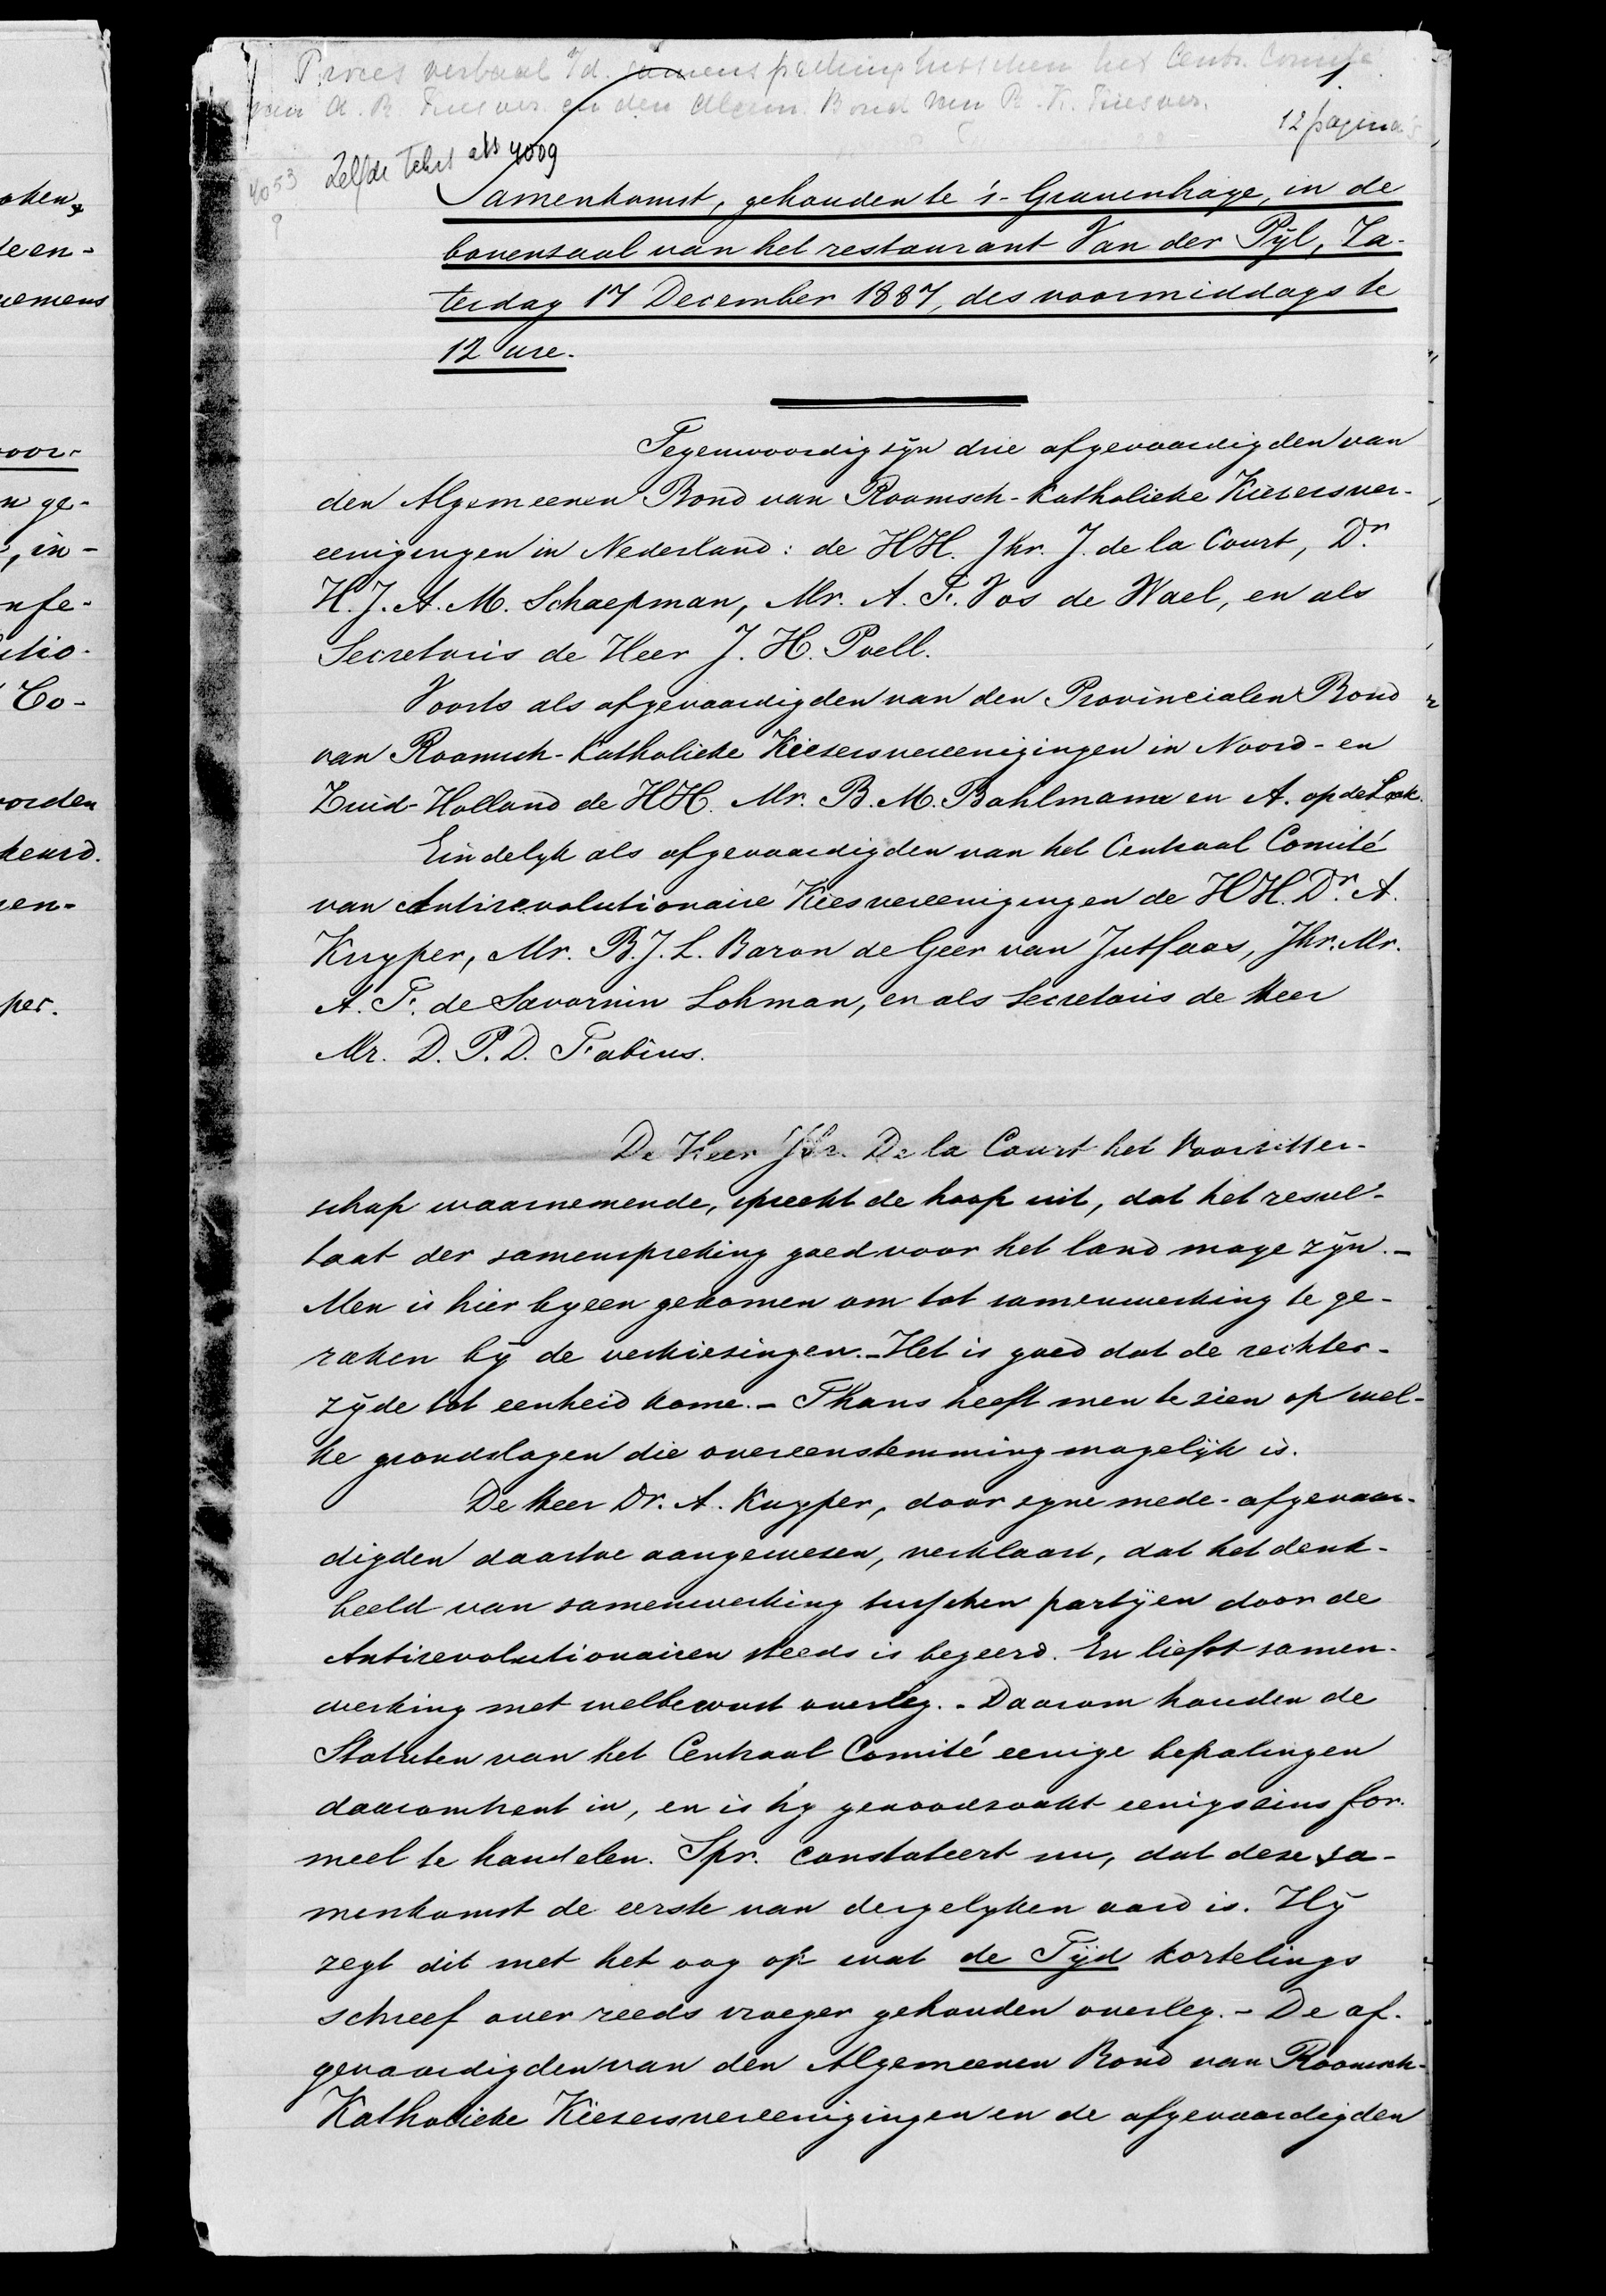 Proces verbaal v/d. samenspreking tusschen het Centr. Comité
van A. R. Kiesver. en den Algem. Bond van R. K. Kiesver.
1.
12 pagina's
Zelfde tekst als 4009
4053
Samenkomst, gehouden te 's-Gravenhage, in de
bovenzaal van het restaurant Van der Pijl, Za-
terdag 17 December 1887, des voormiddags te
12 ure.
Tegenwoordig zijn drie afgevaardigden van
den Algemeenen Bond van Roomsch-Katholieke Kiezersver-
eenigingen in Nederland: de HH. Jhr. J. de la Court, Dr.
H. J. A. M. Schaepman, Mr. A. F. Vos de Wael, en als
Secretaris de Heer J. H. Poell.
Voorts als afgevaardigden van den Provincialen Bond
van Roomsch-Katholieke Kiezersvereenigingen in Noord- en
Zuid-Holland de HH. Mr. B. M. Bahlmann en A. op de Laak.
Eindelijk als afgevaardigden van het Centraal Comité
van Antirevolutionaire Kiesvereenigingen de HH. Dr. A.
Kuyper, Mr. B. J. L. Baron de Geer van Jutfaas, Jhr. Mr.
A. F. de Savornin Lohman, en als Secretaris de Heer
Mr. D. P. D. Fabius.
De Heer Jhr. De la Court het Voorzitter-
schap waarnemende, spreekt de hoop uit, dat het resul-
taat der samenspreking goed voor het land moge zijn. -
Men is hier bijeen gekomen om tot samenwerking te ge-
raken bij de verkiezingen. - Het is goed dat de rechter-
zijde tot eenheid kome. - Thans heeft men te zien op wel-
ke grondslagen die overeenstemming mogelijk is.
De Heer Dr. A. Kuyper, door zijne mede-afgevaar-
digden daartoe aangewezen, verklaart, dat het denk-
beeld van samenwerking tusschen partijen door de
Antirevolutionairen steeds is begeerd. En liefst samen-
werking met welbewust overleg. - Daarom houden de
Statuten van het Centraal Comité eenige bepalingen
daaromtrent in, en is hij genoodzaakt eenigszins for-
meel te handelen. Spr. constateert nu, dat deze sa-
menkomst de eerste van dergelijken aard is. Hij
zegt dit met het oog op wat de Tijd kortelings
schreef over reeds vroeger gehouden overleg. - De af-
gevaardigden van den Algemeenen Bond van Roomsch-
Katholieke Kiezersvereenigingen en de afgevaardigden